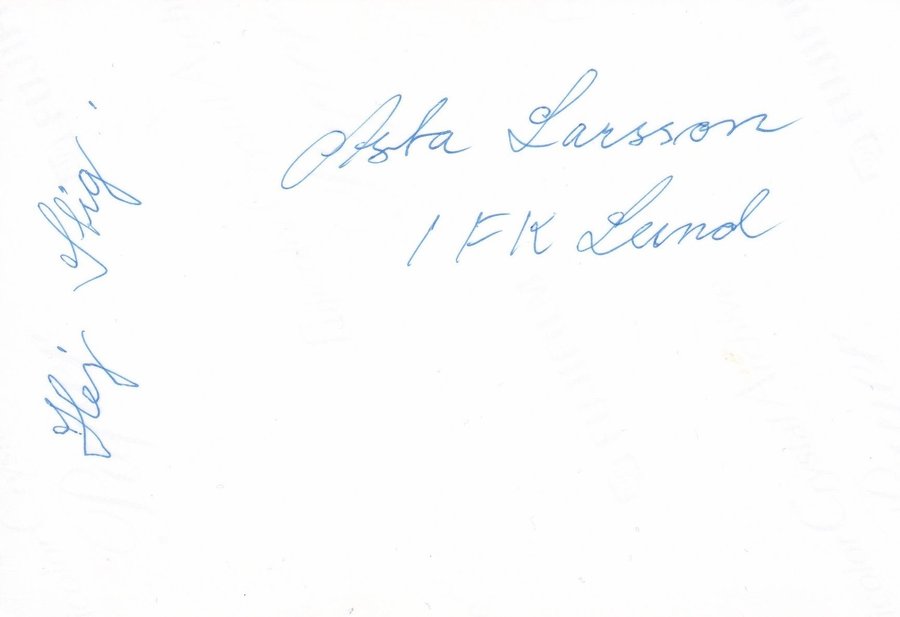 Asta Larsson
IFK Lund
Hej Stig.